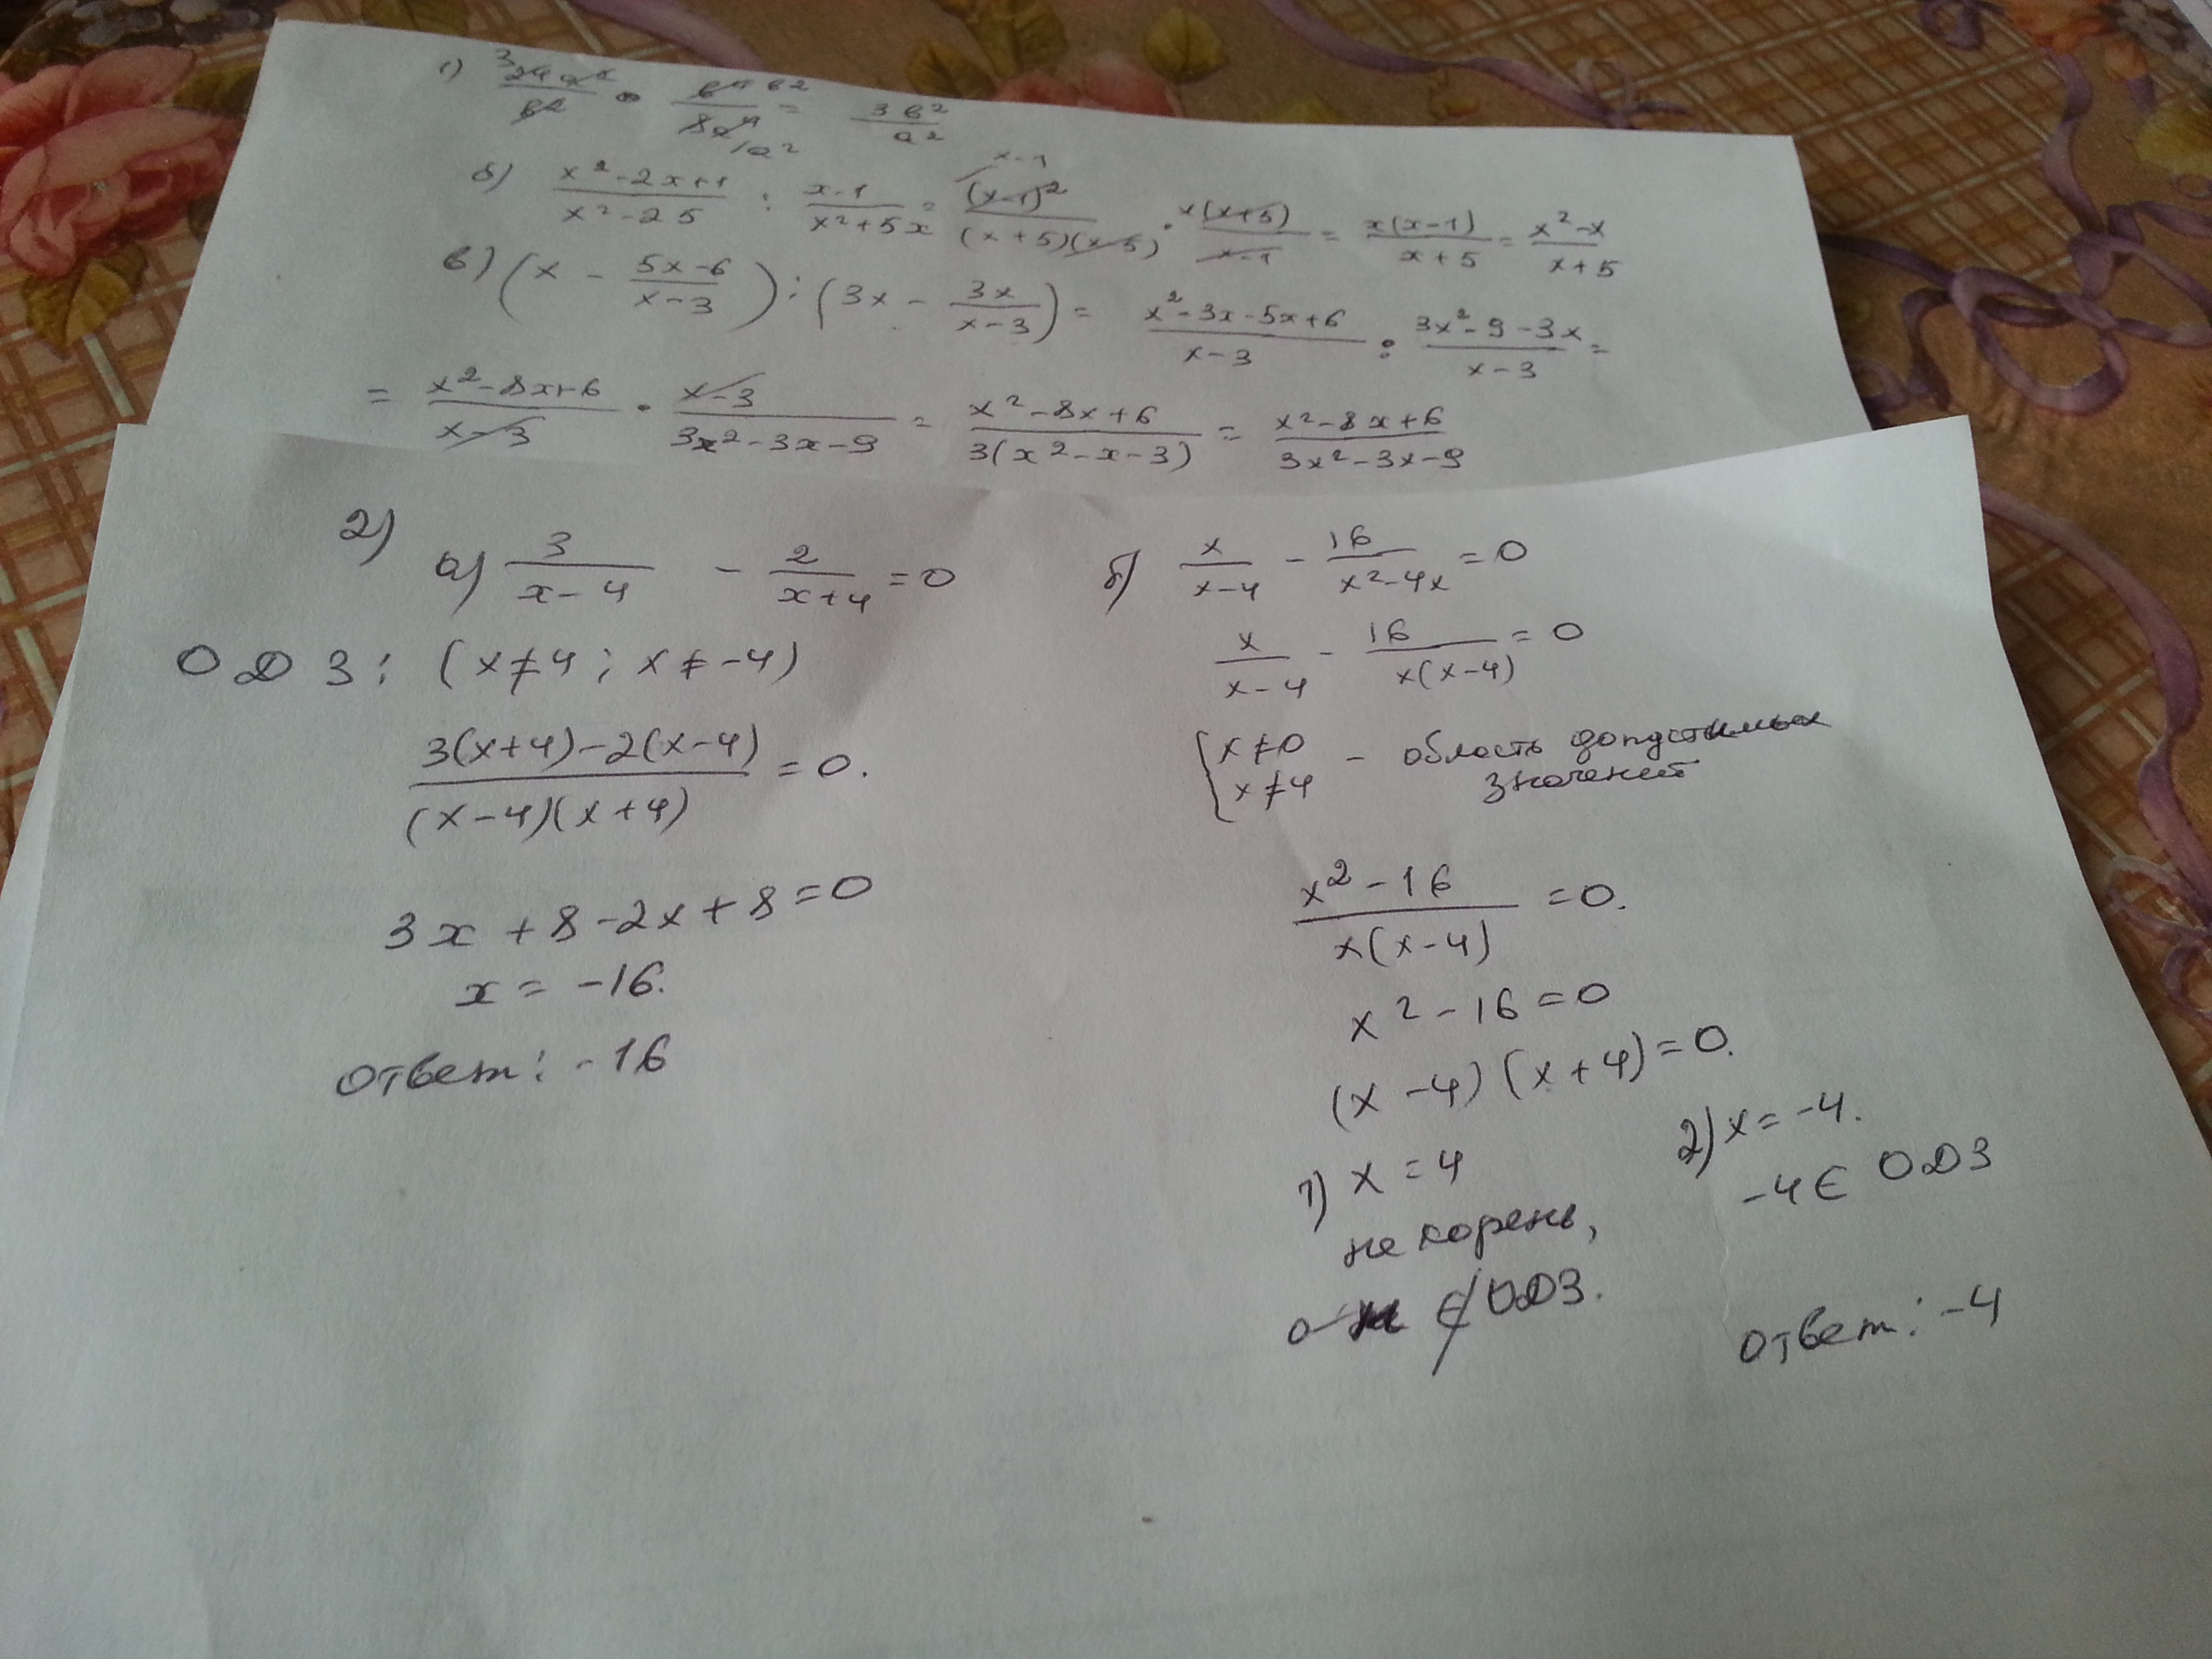 1) 3 24a² / b² • b⁴ b² / 8a⁴ / a² = 3b² / a²
б) x²-2x+1 / x²-25 : x-1 / x²+5x = x-1 (x-1)² / (x+5)(x-5) · x(x+5) / x-1 = x(x-1) / x+5 = x²-x / x+5
в) (x - 5x-6 / x-3) : (3x - 3x / x-3) = x²-3x-5x+6 / x-3 : 3x²-9-3x / x-3 =
= x²-8x+6 / x-3 • x-3 / 3x²-3x-9 = x²-8x+6 / 3(x²-x-3) = x²-8x+6 / 3x²-3x-9
2)
а) 3 / x-4 - 2 / x+4 = 0
ОДЗ: (x≠4; x≠-4)
3(x+4)-2(x-4) / (x-4)(x+4) = 0.
3x+8-2x+8=0
x = -16.
Ответ: -16
б) x / x-4 - 16 / x²-4x = 0
x / x-4 - 16 / x(x-4) = 0
{ x≠0
x≠4 - область допустимых
значений
x²-16 / x(x-4) = 0.
x²-16=0
(x-4)(x+4)=0.
1) x=4
не корень,
∉ ОДЗ.
2) x=-4.
-4∈ ОДЗ
Ответ: -4